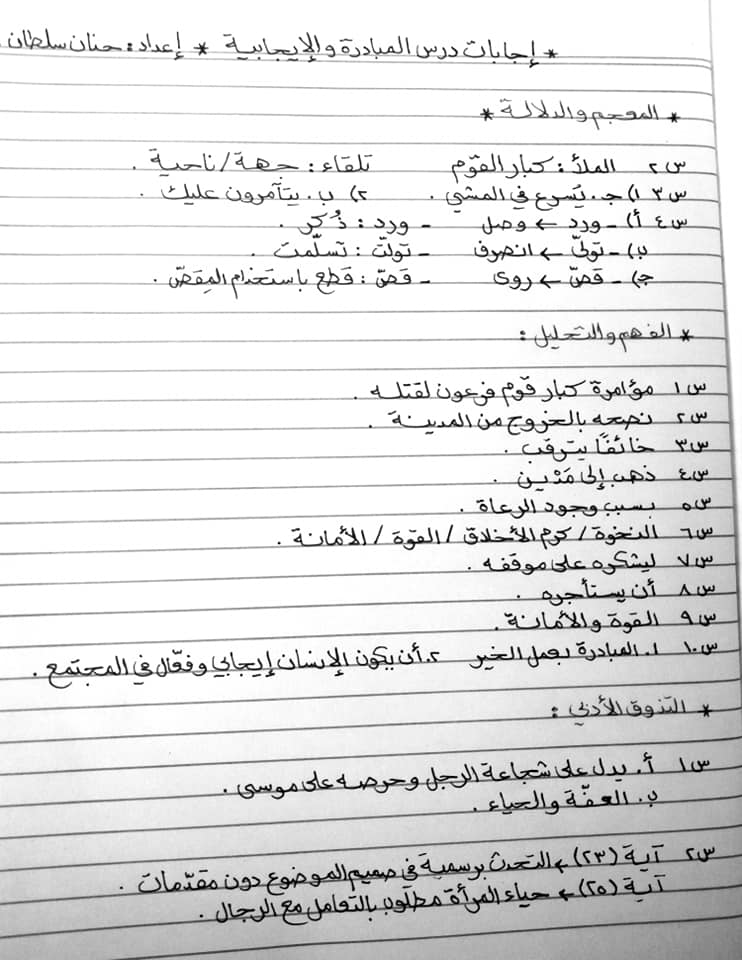 * إجابات درس المبادرة والإيجابية * إعداد: حنان سلطان.
* المعجم والدلالة *
س٢ الملأ: كبار القوم تلقاء: جهة/ناحية.
س٣ ١) جـ. يَسرع في المشي. ٢) ب. يتآمرون عليك.
س٤ أ) - ورد ← وصل - ورد: ذُكر.
ب) - تولّى ← انصرف - تولّت: تسلّمت
جـ) - قصّ ← روى - قصّ: قطع باستخدام المِقصّ.
* الفهم والتحليل:
س١ مؤامرة كبار قوم فرعون لقتله.
س٢ نصحه بالخروج من المدينة.
س٣ خائفًا يترقب.
س٤ ذهب إلى مَدْين.
س٥ بسبب وجود الرعاة.
س٦ النخوة/كرم الأخلاق/القوة/الأمانة.
س٧ ليشكره على موقفه.
س٨ أن يستأجره.
س٩ القوة والأمانة.
س١٠ ١. المبادرة بعمل الخير ٢. أن يكون الإنسان إيجابي وفعّال في المجتمع.
* التذوق الأدبي:
س١ أ. يدل على شجاعة الرجل وحرصه على موسى.
ب. العفّة والحياء.
س٢ آية (٢٣) ← التحدث برسمية في صميم الموضوع دون مقدّمات.
آية (٢٥) ← حياء المرأة مطلوب بالتعامل مع الرجال.